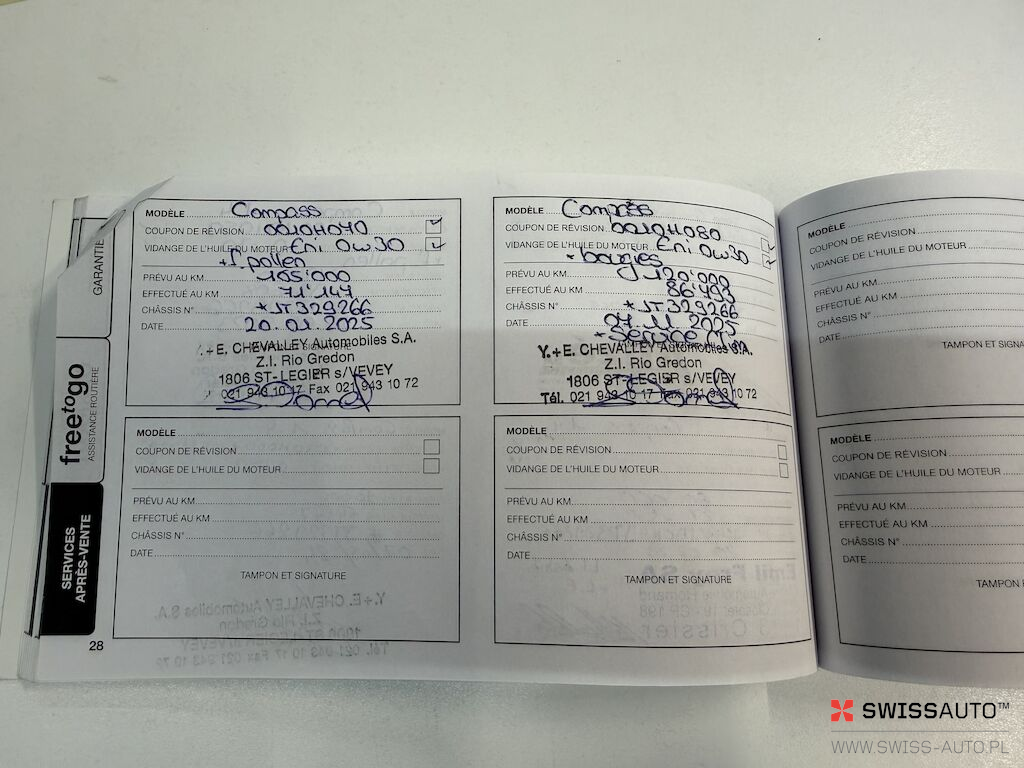 GARANTIE
freetogo
ASSISTANCE ROUTIÈRE
SERVICES
APRÈS-VENTE
28
MODÈLE Compass
COUPON DE RÉVISION 00104070
VIDANGE DE L'HUILE DU MOTEUR Eni 0w30
+ f. pollen
PRÉVU AU KM 105'000
EFFECTUÉ AU KM 71'147
CHÂSSIS N° *JT329266
DATE 20.01.2025
Y.+E. CHEVALLEY Automobiles S.A.
Z.I. Rio Gredon
1806 ST-LEGIER s/VEVEY
021 943 10 17 Fax 021 943 10 72
MODÈLE Compass
COUPON DE RÉVISION 00104080
VIDANGE DE L'HUILE DU MOTEUR Eni 0w30
+ bougies
PRÉVU AU KM 120'000
EFFECTUÉ AU KM
CHÂSSIS N° *JT329266
DATE 11.2025
+ service
Y.+E. CHEVALLEY Automobiles S.A.
Z.I. Rio Gredon
1806 ST-LEGIER s/VEVEY
Tél. 021 943 10 17 Fax 021 943 10 72
MODÈLE
COUPON DE RÉVISION
VIDANGE DE L'HUILE DU MOTEUR
PRÉVU AU KM
EFFECTUÉ AU KM
CHÂSSIS N°
DATE
TAMPON ET SIGNATURE
MODÈLE
COUPON DE RÉVISION
VIDANGE DE L'HUILE DU MOTEUR
PRÉVU AU KM
EFFECTUÉ AU KM
CHÂSSIS N°
DATE
TAMPON ET SIGNATURE
MODÈLE
COUPON DE RÉVISION
VIDANGE DE L'HUILE DU MOTEUR
PRÉVU AU KM
EFFECTUÉ AU KM
CHÂSSIS N°
DATE
TAMPON ET SIGNA
MODÈLE
COUPON DE RÉVISION
VIDANGE DE L'HUILE DU MOTEUR
PRÉVU AU KM
EFFECTUÉ AU KM
CHÂSSIS N°
DATE
TAMPON
SWISSAUTO™
WWW.SWISS-AUTO.PL